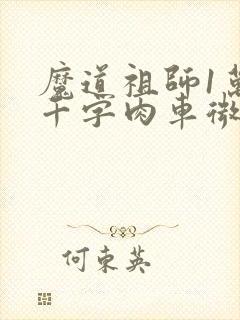 魔道祖師1萬
千字肉車微
何東英